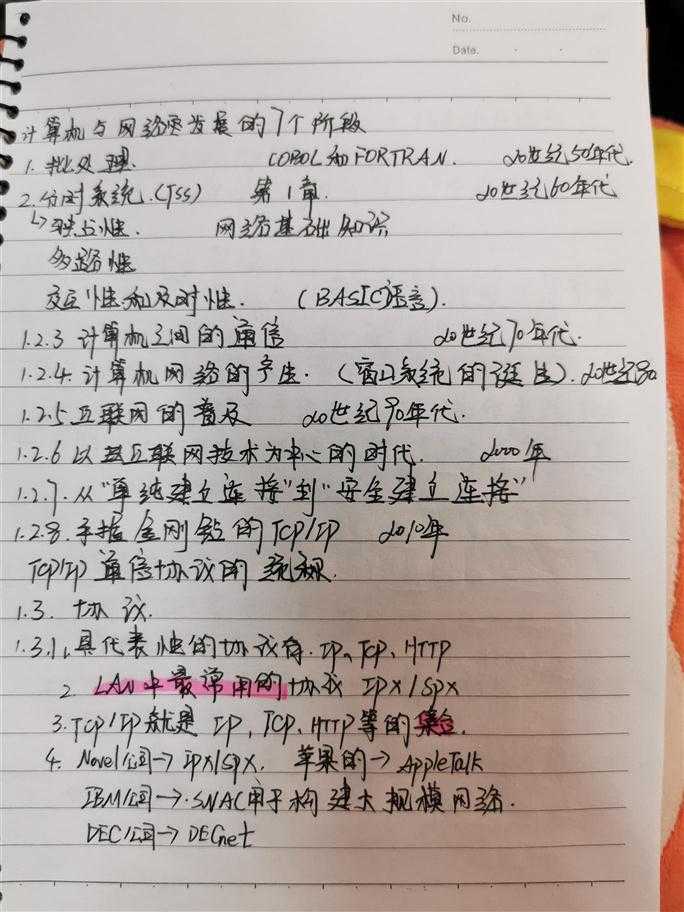 No.
Date.
计算机与网络发展的7个阶段
1. 批处理. COBOL和FORTRAN. 20世纪50年代.
2. 分时系统.(TSS) 第1章. 20世纪60年代
↳独占性. 网络基础知识
多路性
交互性和及时性. (BASIC语言).
1.2.3 计算机之间的通信 20世纪70年代.
1.2.4. 计算机网络的产生. (窗口系统的诞生). 20世纪80
1.2.5 互联网的普及 20世纪90年代.
1.2.6 以互联网技术为中心的时代. 2000年
1.2.7. 从"单纯建立连接"到"安全建立连接"
1.2.8. 手握金刚钻的TCP/IP 2010年
TCP/IP 通信协议的统称.
1.3. 协议.
1.3.1 1. 具代表性的协议有. IP、TCP、HTTP
2. LAN中最常用的协议 IPX/SPX
3. TCP/IP就是 IP, TCP、HTTP等的集合.
4. Novel公司→IPX/SPX. 苹果的→AppleTalk
IBM公司→.SNA(用于构建大规模网络.
DEC公司→DECnet